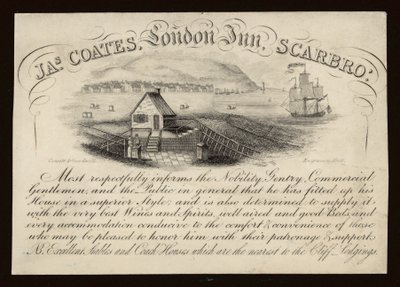 JAS. COATES, London Inn, SCARBRO';
Most respectfully informs the Nobility, Gentry, Commercial
Gentlemen, and the Public in general that he has fitted up his
House in a superior Style; and is also determined to supply it
with the very best Wines and Spirits, well aired and good Beds, and
every accommodation conducive to the comfort & convenience of those
who may be pleased to honor him with their patronage & support.
NB. Excellent Stables and Coach Houses which are the nearest to the Cliff Lodgings.